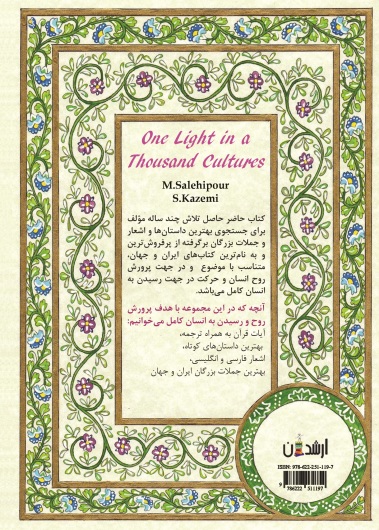 One Light in a
Thousand Cultures
M.Salehipour
S.Kazemi
کتاب حاضر حاصل تلاش چند ساله مؤلف
برای جستجوی بهترین داستان‌ها و اشعار
و جملات بزرگان برگرفته از پرفروش‌ترین
و به نام‌ترین کتاب‌های ایران و جهان،
متناسب با موضوع و در جهت پرورش
روح انسان و حرکت در جهت رسیدن به
انسان کامل می‌باشد.
آنچه که در این مجموعه با هدف پرورش
روح و رسیدن به انسان کامل می‌خوانیم:
آیات قرآن به همراه ترجمه،
بهترین داستان‌های کوتاه،
اشعار فارسی و انگلیسی،
بهترین جملات بزرگان ایران و جهان
ارشدان
ISBN: 978-622-251-119-7
9 786222 511197